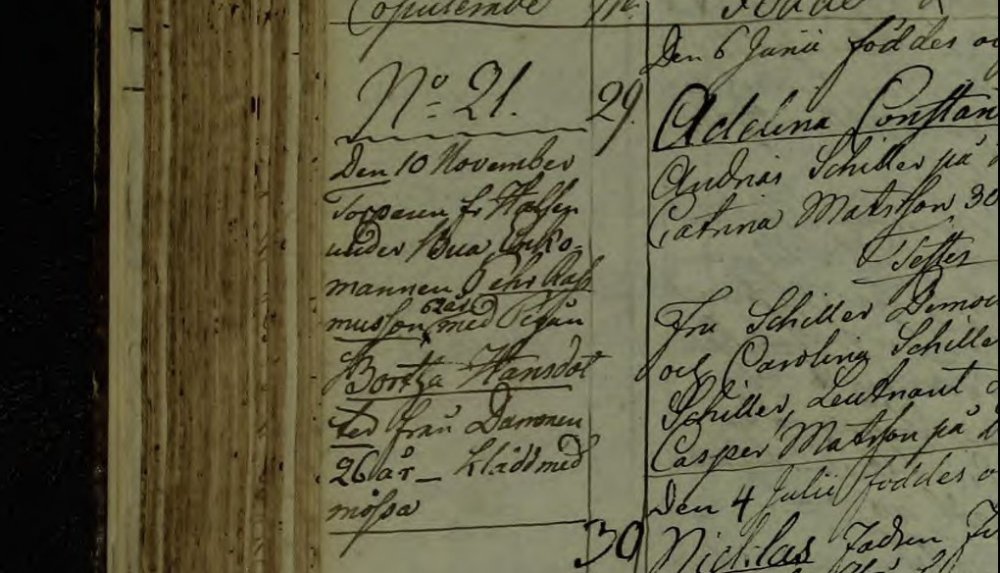 Copulerade
No. 21.
Den 10 November
Torparen fr Halsen
under Bua Enko-
mannen Pehr Rass
musson 62 år med Pigan
Bortha Hansdot
ter från Dammen
26 år _ klädd med
mössa
29.
30
Den 6 Junii föddes
Adelina Constan
Andrias Schiller på
Catrina Matsson 30
Testes
Fru Schiller Demois
och Carolina Schille
Schiller, Leutnant
Casper Matsson på
Den 4 Julii föddes
Nicklas Fadren